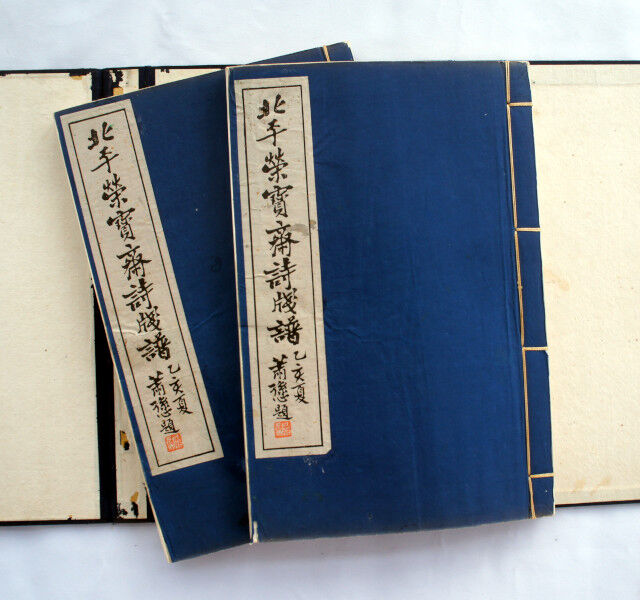 北平榮寶齋詩牋譜
乙亥夏
蕭愻題
北平榮寶齋詩牋譜
乙亥夏
蕭愻題